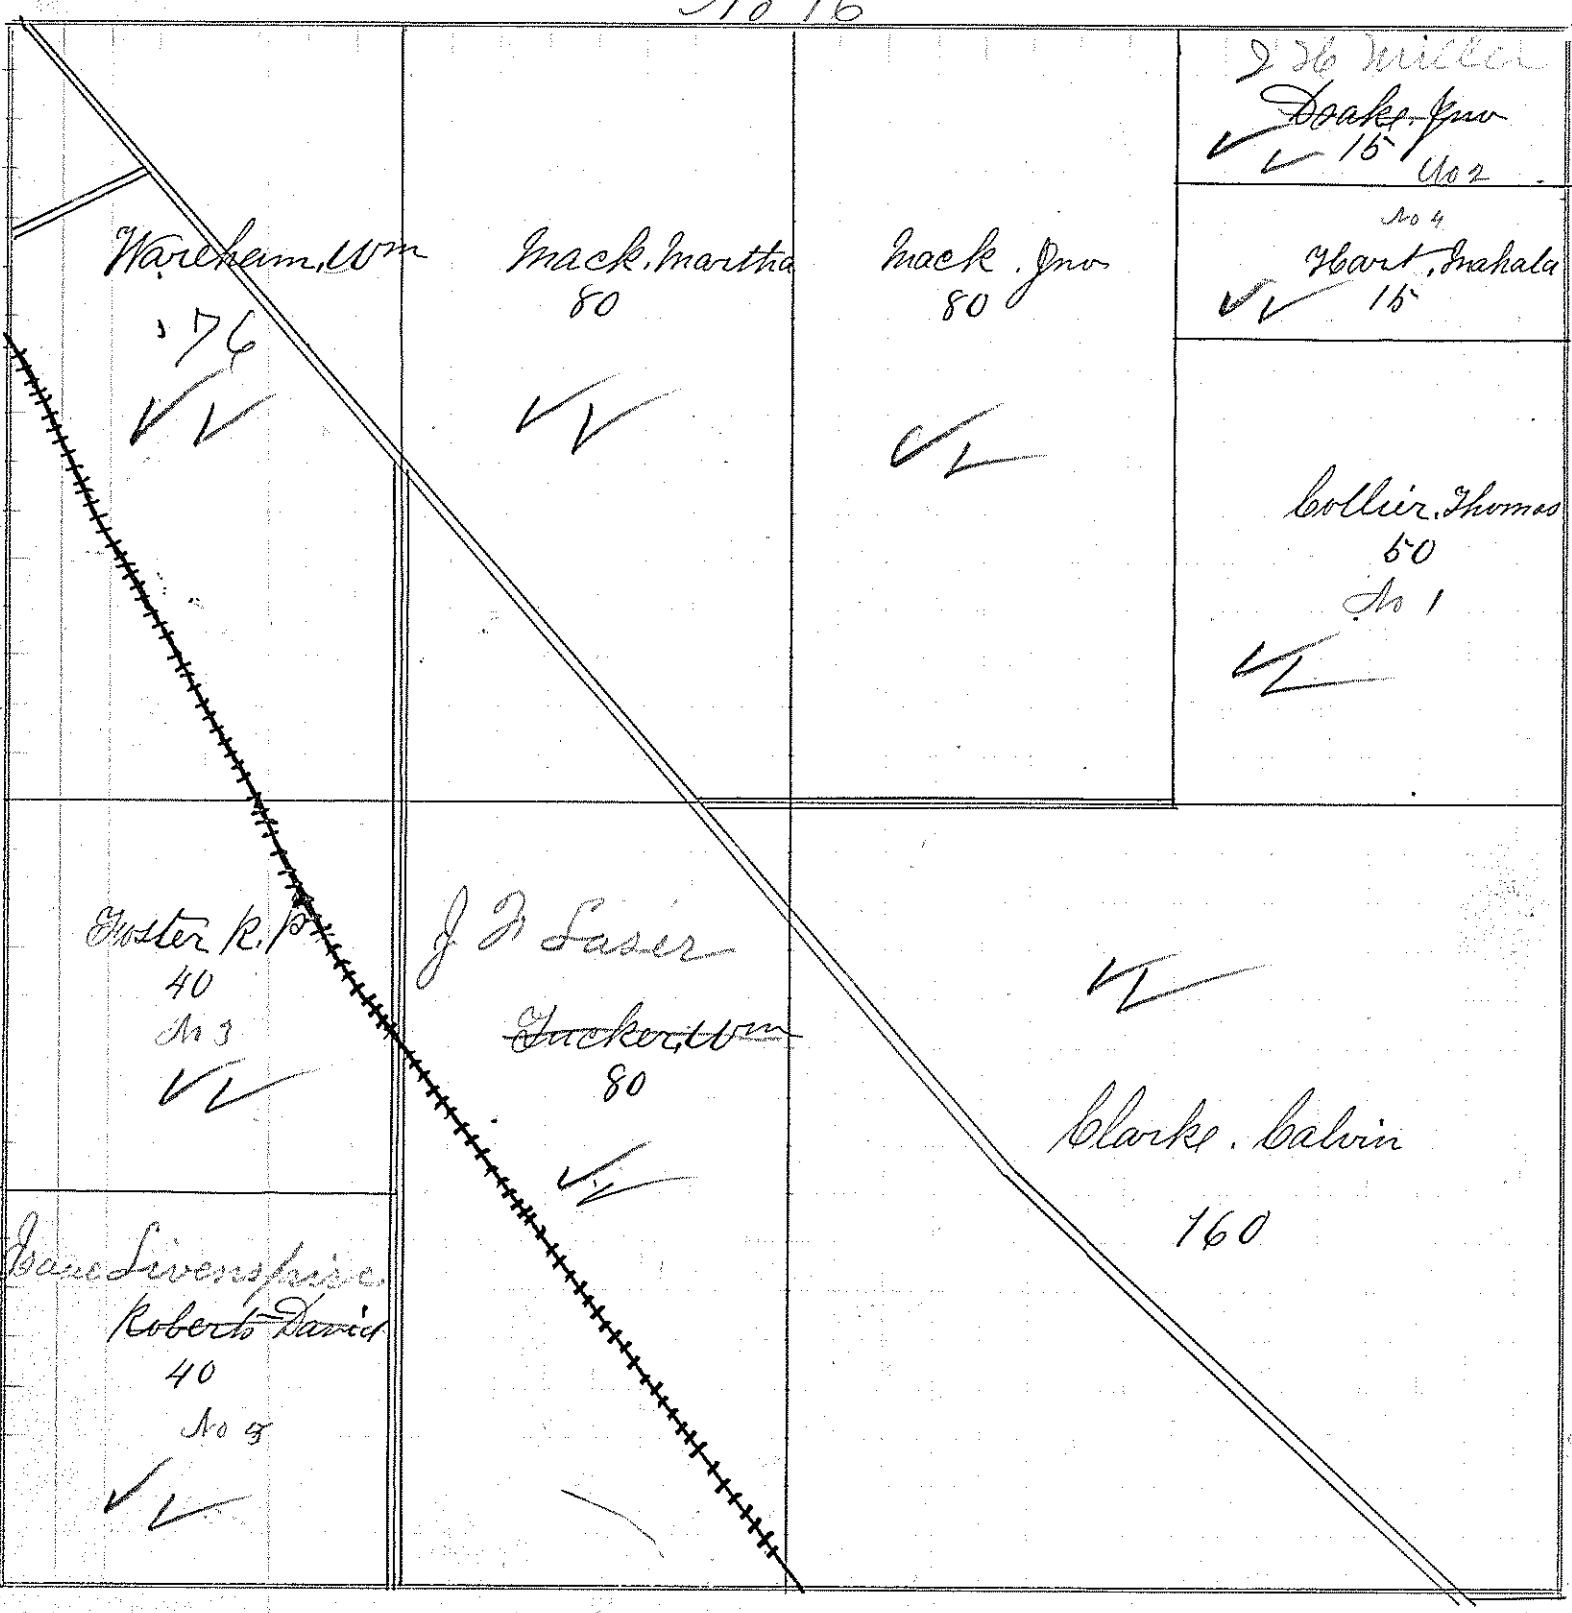 No 16
Wareham, Wm
76
Mack. Martha
80
Mack. Jno
80
Miller
Doake. Jno
15
No 2
No 4
Hart, Mahala
15
Collier, Thomas
50
No 1
Foster R. P
40
No 3
J F Laser
Tucker, Wm
80
Clarke. Calvin
160
Isaac Livenspire
Roberts David
40
No